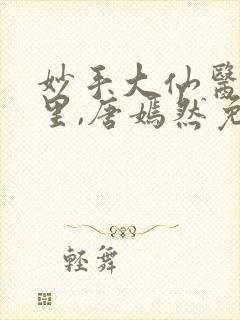 妙手大仙醫
里,唐嫣然免
輕舞